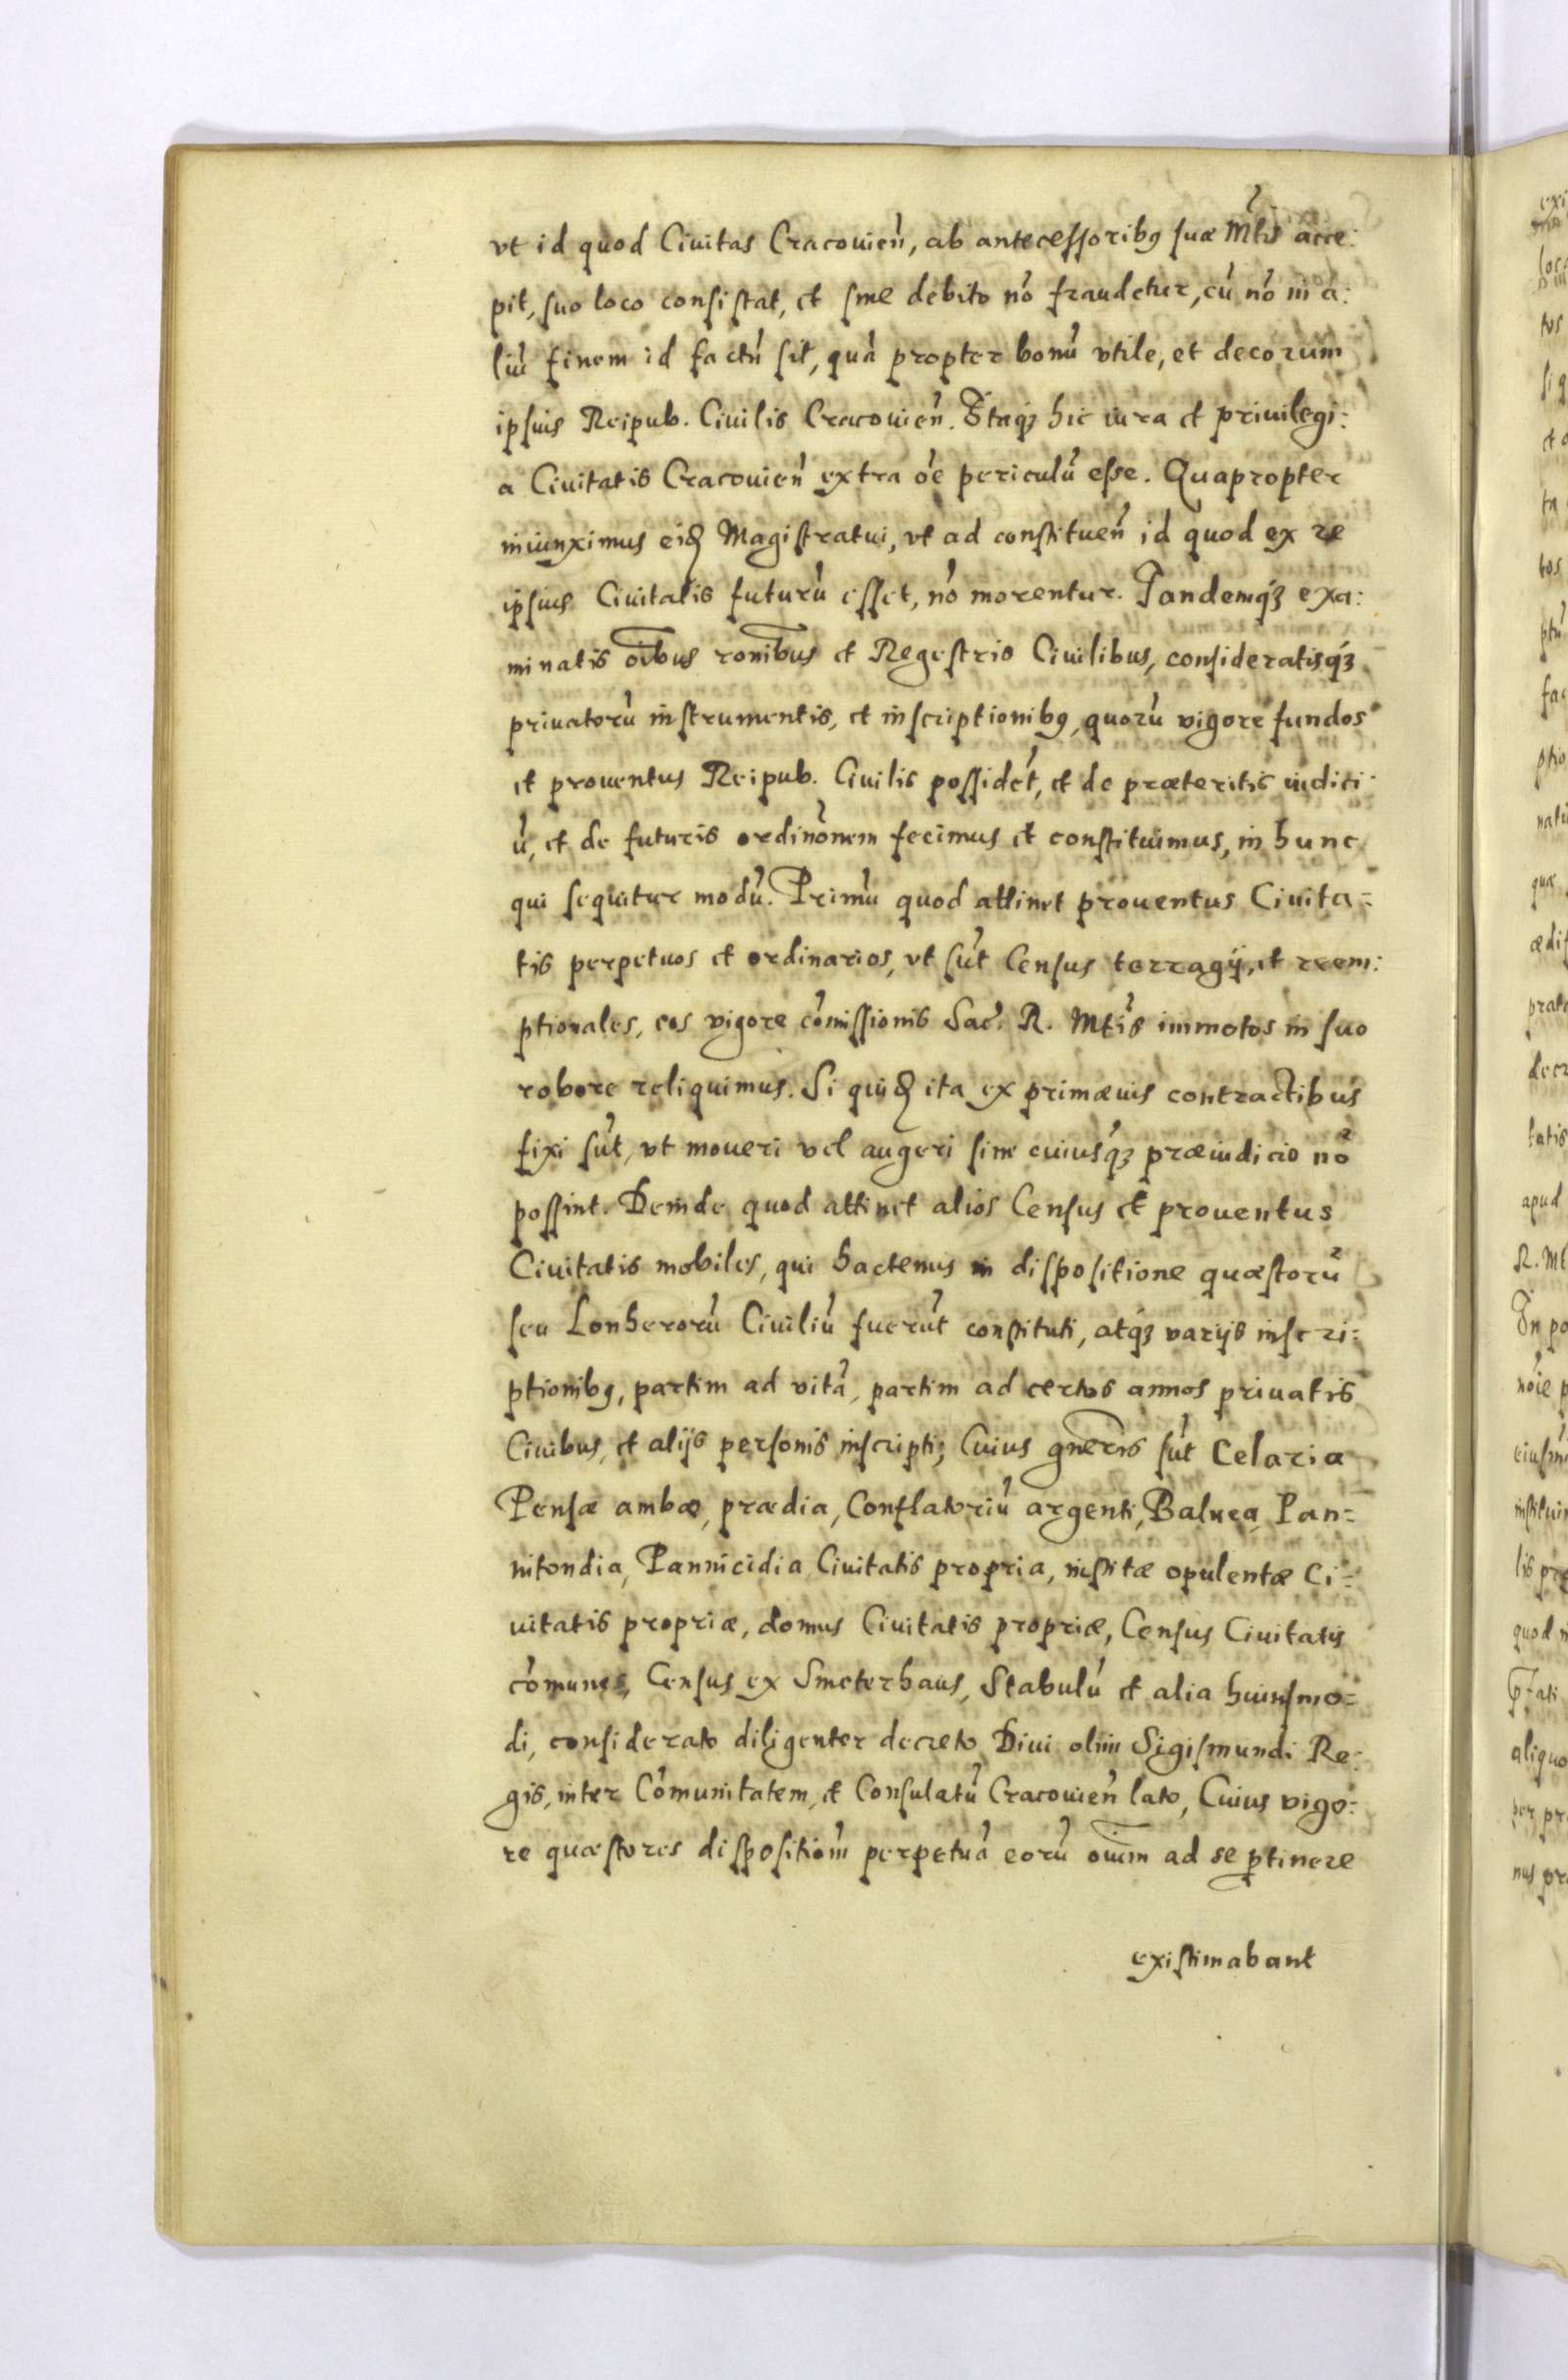 vt id quod Ciuitas Cracouień, ab antecessoribꝯ suæ Mtis acce:
pit, suo loco consistat, et sine debito nō fraudetur, cū nō in a:
liū finem id factū sit, quā propter bonū vtile, et decorum
ipsius Reipub. Ciuilis Cracouień. Itaqꝫ hic iura et priuilegi:
a Ciuitatis Cracouień extra oē periculū esse. Quapropter
iniunximus eiđ Magistratui, vt ad constitueń id quod ex re
ipsius Ciuitatis futurū esset, nō morentur. Tandemqꝫ exa:
minatis oībus ronībus et Regestris Ciuilibus, consideratisqꝫ
priuatorū instrumentis, et inscriptionibꝯ, quorū vigore fundos
et prouentus Reipub. Ciuilis possidēt, et de præteritis iudici:
ū, et de futuris ordinōnem fecimus et constituimus, in hunc
qui sequitur modū. Primū quod attinet prouentus Ciuita=
tis perpetuos et ordinarios, vt sūt Census terragij, et reem:
ptionales, eos vigore cōmissionis Sac. R. Mtis immotos in suo
robore reliquimus. Si quiđ ita ex primæuis contractibus
fixi sūt, vt moueri vel augeri sine cuiusqꝫ præiudicio nō
possint. Deinde quod attinet alios Census et prouentus
Ciuitatis mobiles, qui hactenus in dispositione quæstorū
seu Lonherorū Ciuiliū fuerūt constituti, atqꝫ varijs inscri=
ptionibꝯ, partim ad vitā, partim ad certos annos priuatis
Ciuibus, et alijs personis inscripti; Cuius gneris sūt Celaria
Pensæ ambæ, prædia, Conflatoriū argenti, Balnea, Pan=
nitondia, Pannicidia Ciuitatis propria, institæ opulentæ Ci=
uitatis propriæ, domus Ciuitatis propriæ, Census Ciuitatis
cōmunes, Census ex Smeterhaus, Stabulū et alia huiusmo=
di, considerato diligenter decreto Diui olim Sigismundi Re:
gis, inter Cōmunitatem, et Consulatū Cracouień lato, Cuius vigo:
re quæstores dispositiōm perpetuā eorū oīum ad se ꝑtinere
existimabant